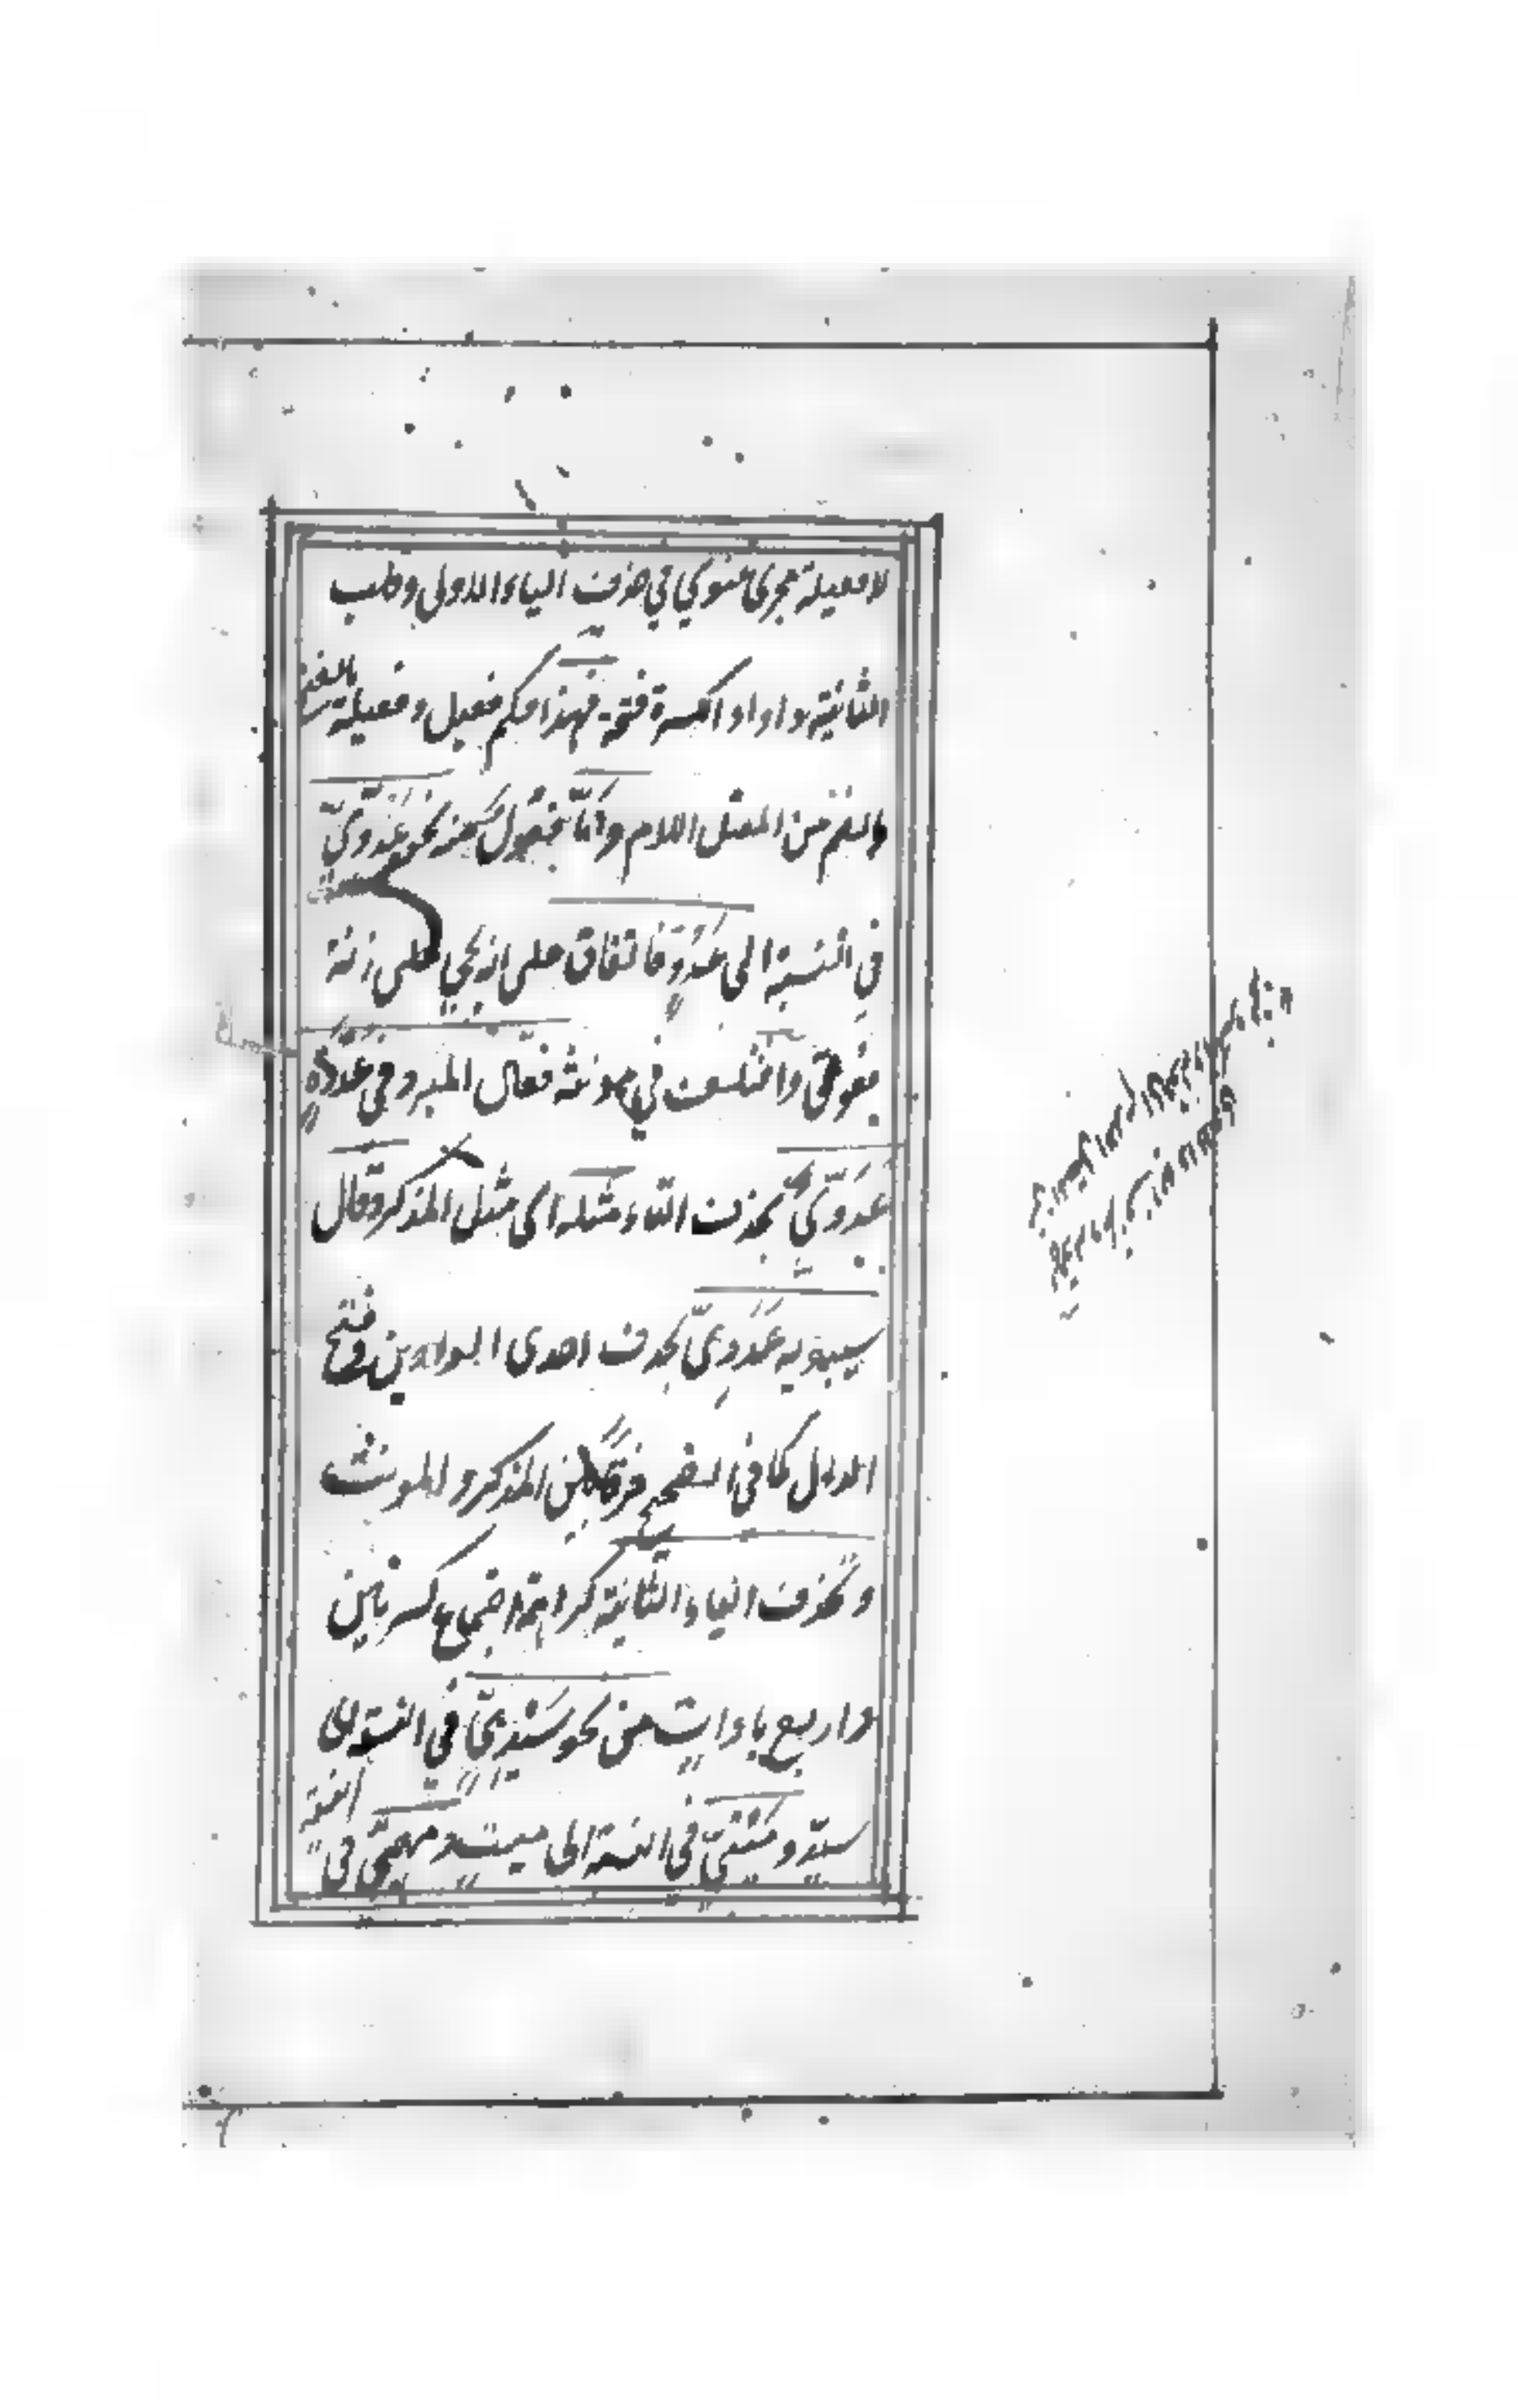 لا فعيلة مجرى غنوي في حذف الياء الاولى وقلب
الثانية واوا والكسرة فتحة فهذا حكم فعيل وفعيلة بالفتح
والضم من المعتل اللام واما فعول منه نحو عَدُوّيّ
في النسبة الى عدوٍّ فاتفاق على انه يجي على زنة
واختلف في مونثه فقال المبرد في عدوّةٍ
عَدُوّيّ بحذف التاء مثله اى مثل المذكر وقال
سيبويه عَدَوِيّ بحذف احدى الواوين وفتح
الدال كما في الصحيح فرقا بين المذكر والمونث
وتحذف الياء الثانية كراهة اجتماع كسرتين
واربع ياءات من نحو سَيْديّ في النسبة الى
سيّد ومَيْتيّ في النسبة الى ميت ومهيميّ في النسبة